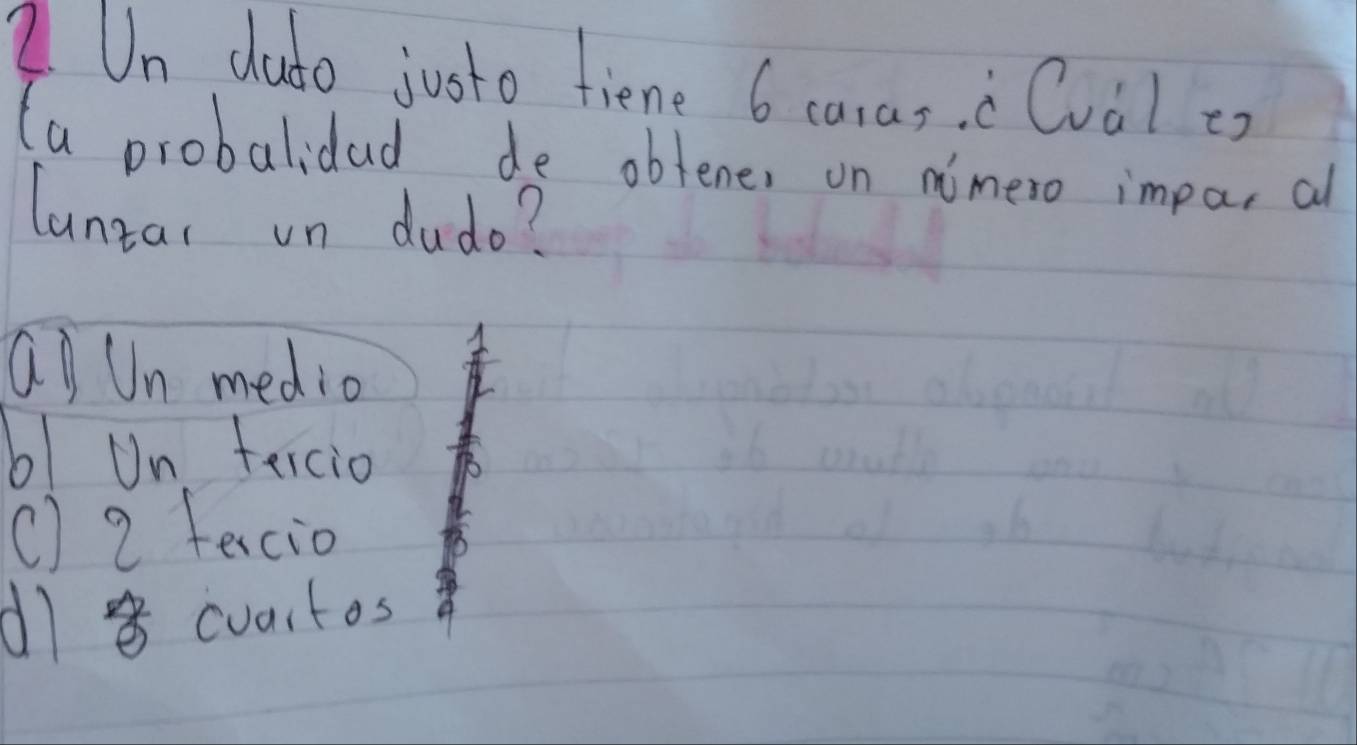 2. Un dado justo tiene 6 caras. ¿ Cuál es
la probalidad de obtener un número impar al
lanzar un dado?
a) Un medio
b) Un tercio
c) 2 tercio
d) cuartos